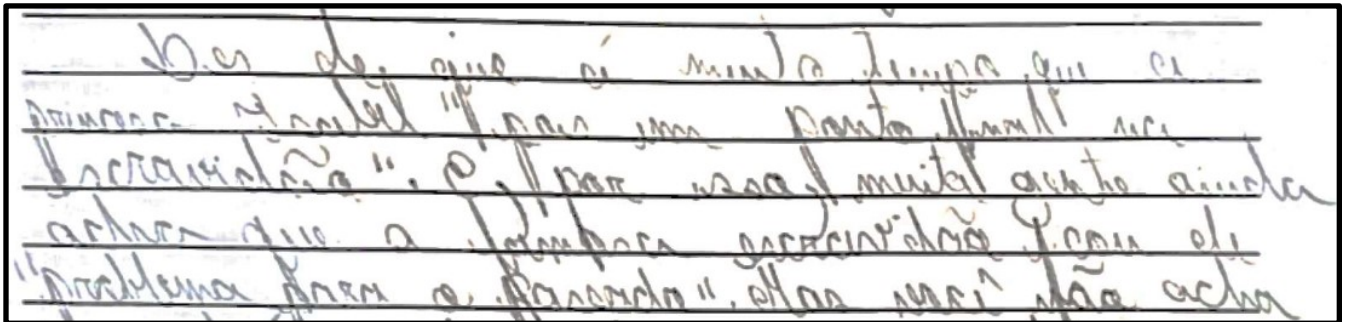 Des de que a muito tempo que a
princesa Isabel "pois um ponto final na
Escravidão". E, por isso, muita gente ainda
achara que a escravidão ficou de
"problema para o Passado". Mas você não acha